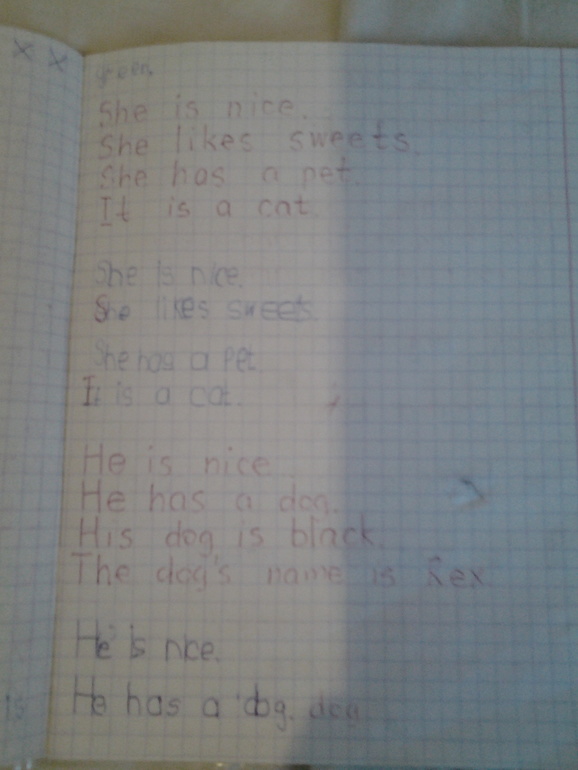 green.
She is nice.
She likes sweets.
She has a pet.
It is a cat
She is nice.
She likes sweets.
She has a pet.
It is a cat.
He is nice
He has a dog.
His dog is black.
The dog's name is Rex
He is nice.
is He has a dog. dog